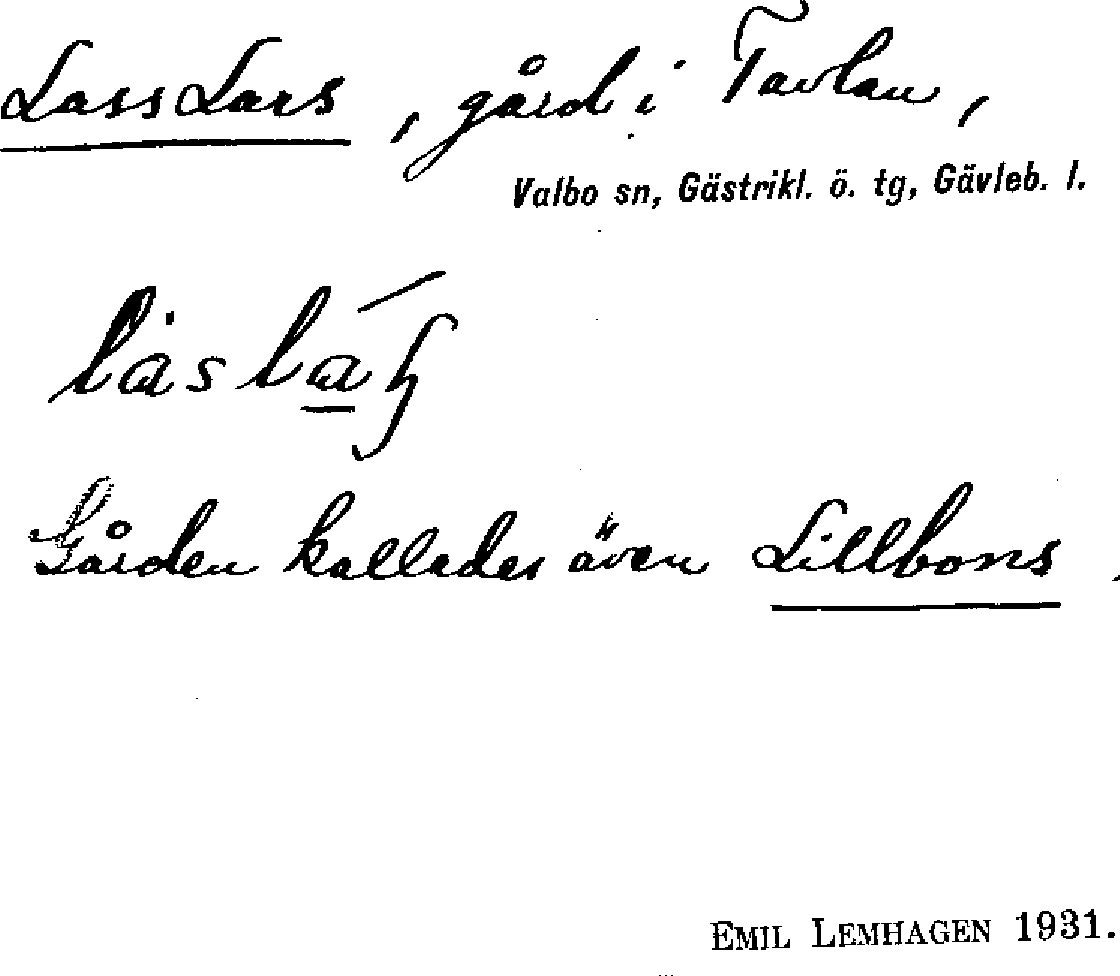 Lass Lars, gård i Tavlan,
Valbo sn, Gästrikl. ö. tg, Gävleb. l.
Gården kallades även Lillbons.
EMIL LEMHAGEN 1931.